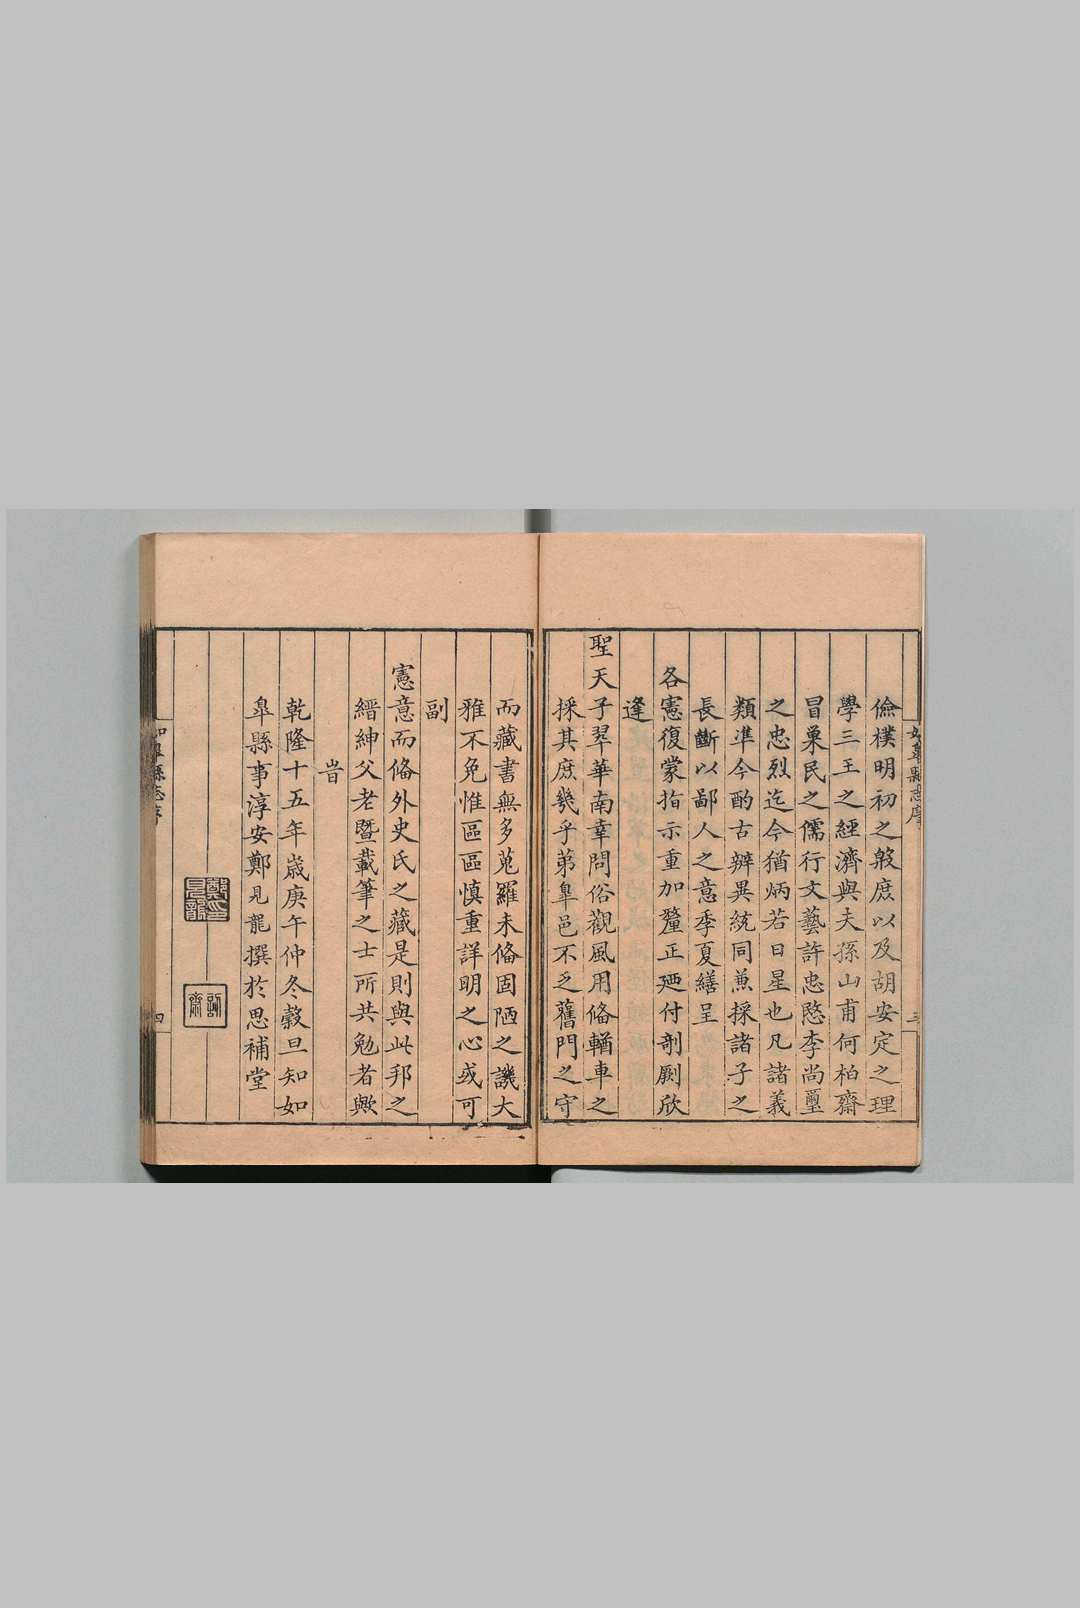 如臯縣志序
三
儉樸明初之殷庶以及胡安定之理
學三王之經濟與夫孫山甫何柏齋
冒巢民之儒行文藝許忠愍李尚璽
之忠烈迄今猶炳若日星也凡諸義
類準今酌古辨異統同兼採諸子之
長斷以鄙人之意季夏繕呈
各憲復蒙指示重加釐正廼付剞劂欣
逢
聖天子翠華南幸問俗觀風用俻輶車之
採其庶幾乎苐臯邑不乏舊門之守
而藏書無多蒐羅未俻固陋之譏大
雅不免惟區區慎重詳明之心或可
副
憲意而俻外史氏之藏是則與此邦之
縉紳父老暨載筆之士所共勉者歟
旹
乾隆十五年歲庚午仲冬穀旦知如
臯縣事淳安鄭見龍撰於思補堂
鄭見龍印
如臯縣志序
四